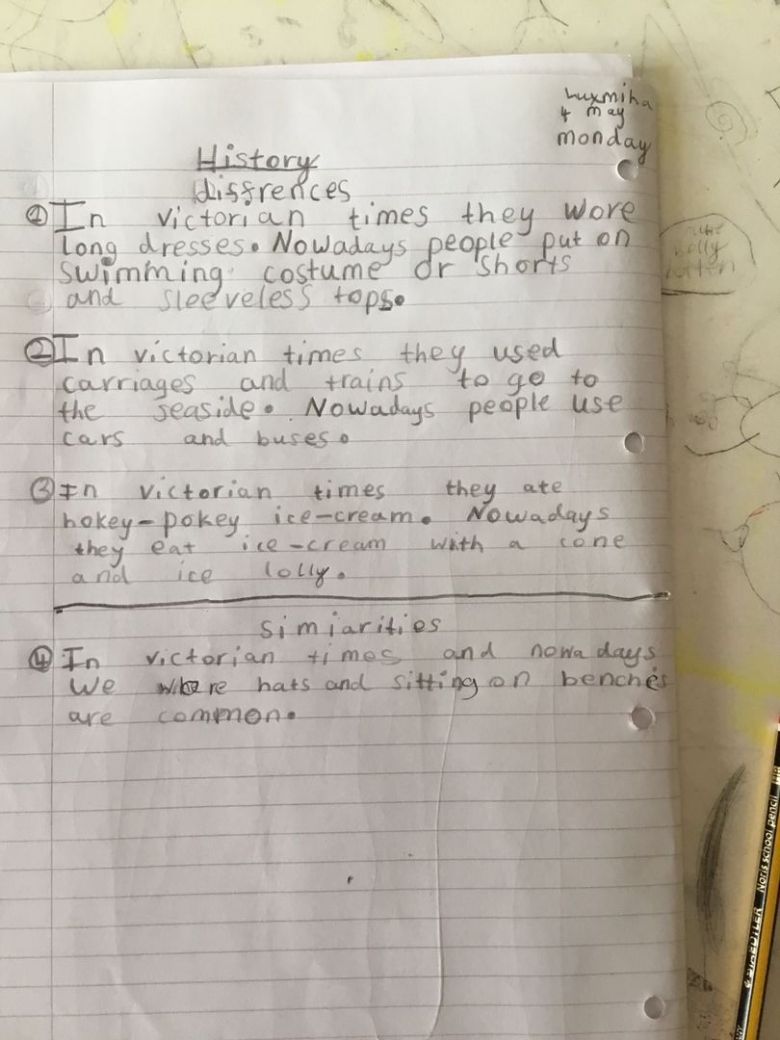 Luxmiha
4 may
monday
History
Diffrences
① In victorian times they wore
Long dresses. Nowadays people put on
swimming costume or shorts
and sleeveless tops.
② In victorian times they used
carriages and trains to go to
the seaside. Nowadays people use
cars and buses.
③ In victorian times they ate
hokey-pokey ice-cream. Nowadays
they eat ice-cream with a cone
and ice lolly.
Simiarities
④ In victorian times and nowadays
we where hats and sitting on benches
are common.
STAEDTLER Noris school pencil HB